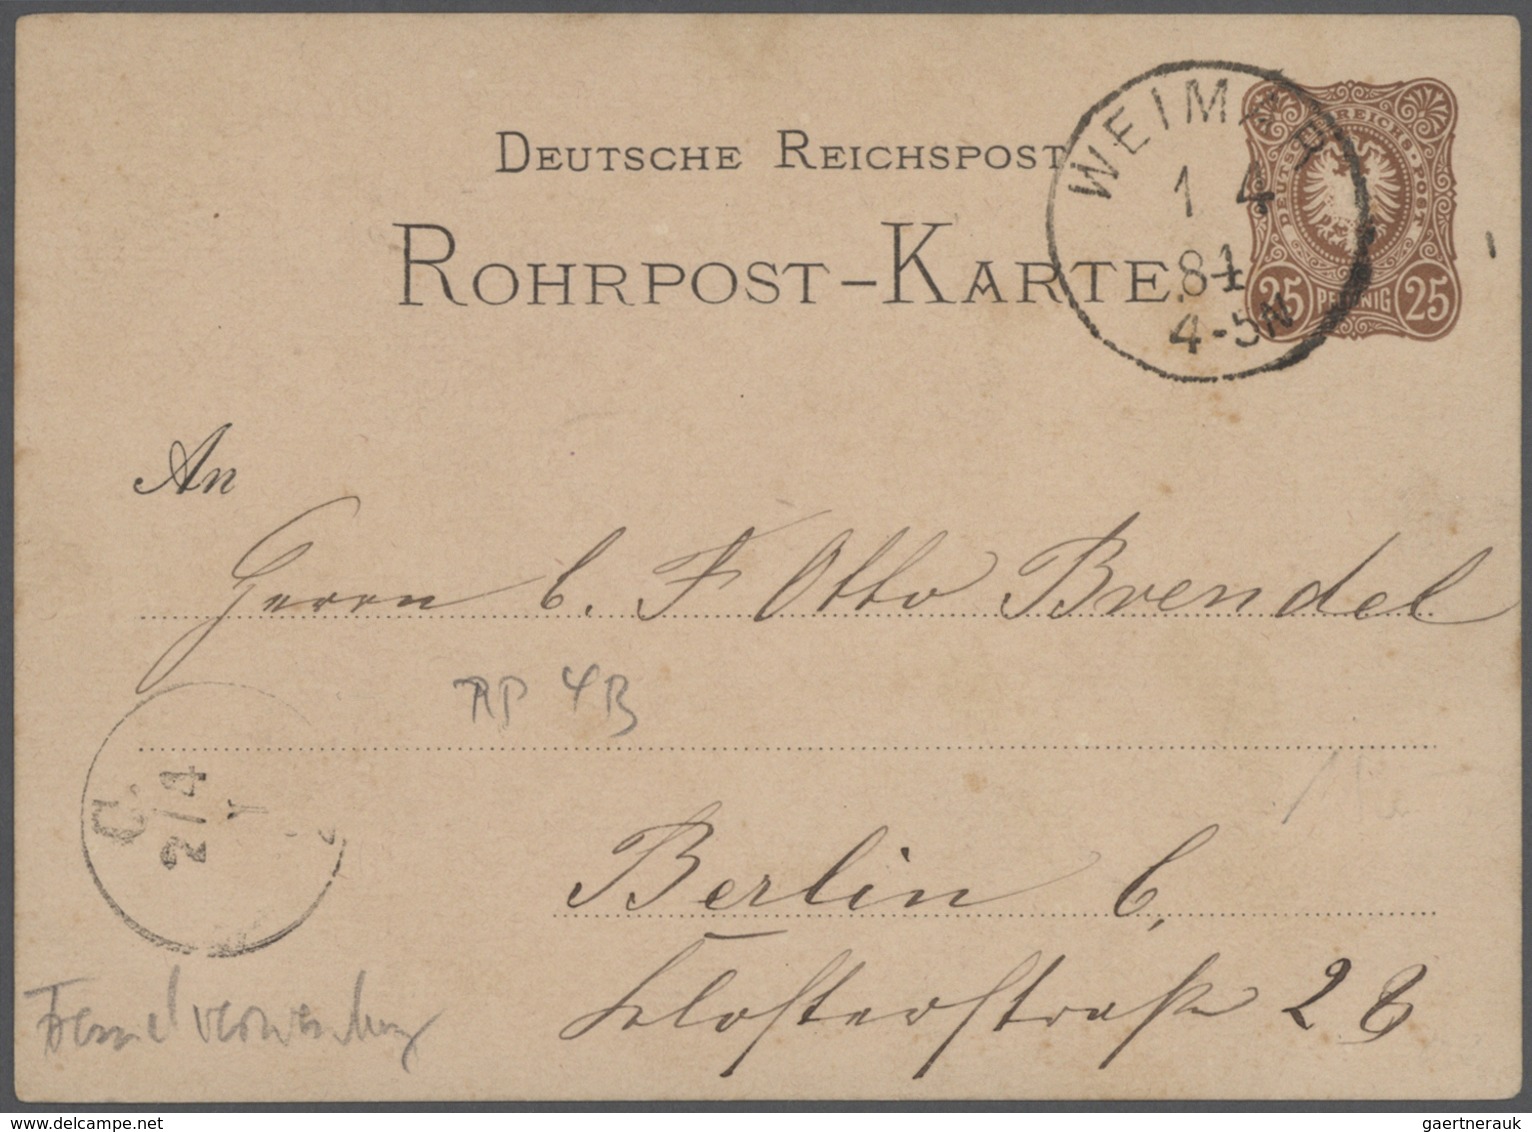 DEUTSCHE REICHSPOST
ROHRPOST-KARTE.
WEIMAR
1 4
81
4-5N
DEUTSCHE REICHS-POST
25 PFENNIG 25
An
Herrn C. F Otto Brendel
RP 4B
C.
2/4
Berlin C,
Klosterstraße 28
Fernverwendung
gaertnerauk